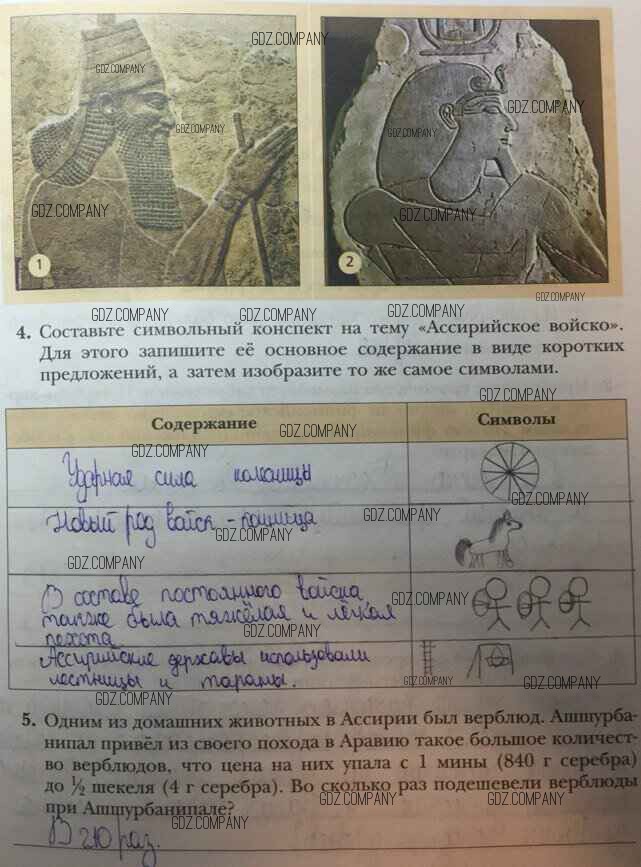 GDZ.COMPANY
GDZ.COMPANY
GDZ.COMPANY
GDZ.COMPANY
GDZ.COMPANY
GDZ.COMPANY
GDZ.COMPANY
1
2
GDZ.COMPANY
GDZ.COMPANY GDZ.COMPANY GDZ.COMPANY
4. Составьте символьный конспект на тему «Ассирийское войско».
Для этого запишите её основное содержание в виде коротких
предложений, а затем изобразите то же самое символами.
GDZ.COMPANY
Содержание Символы
GDZ.COMPANY
GDZ.COMPANY
Ударная сила колесницы
GDZ.COMPANY
Новый род войск - конница
GDZ.COMPANY
GDZ.COMPANY
GDZ.COMPANY
В составе постоянного войска,
GDZ.COMPANY
также была тяжёлая и лёгкая
GDZ.COMPANY
пехота
Ассирийские державы использовали
лестницы и тараны.
GDZ.COMPANY GDZ.COMPANY
GDZ.COMPANY
5. Одним из домашних животных в Ассирии был верблюд. Ашшурба-
нипал привёл из своего похода в Аравию такое большое количест-
во верблюдов, что цена на них упала с 1 мины (840 г серебра)
до ½ шекеля (4 г серебра). Во сколько раз подешевели верблюды
при Ашшурбанипале?
GDZ.COMPANY GDZ.COMPANY
В 210 раз.
GDZ.COMPANY
GDZ.COMPANY